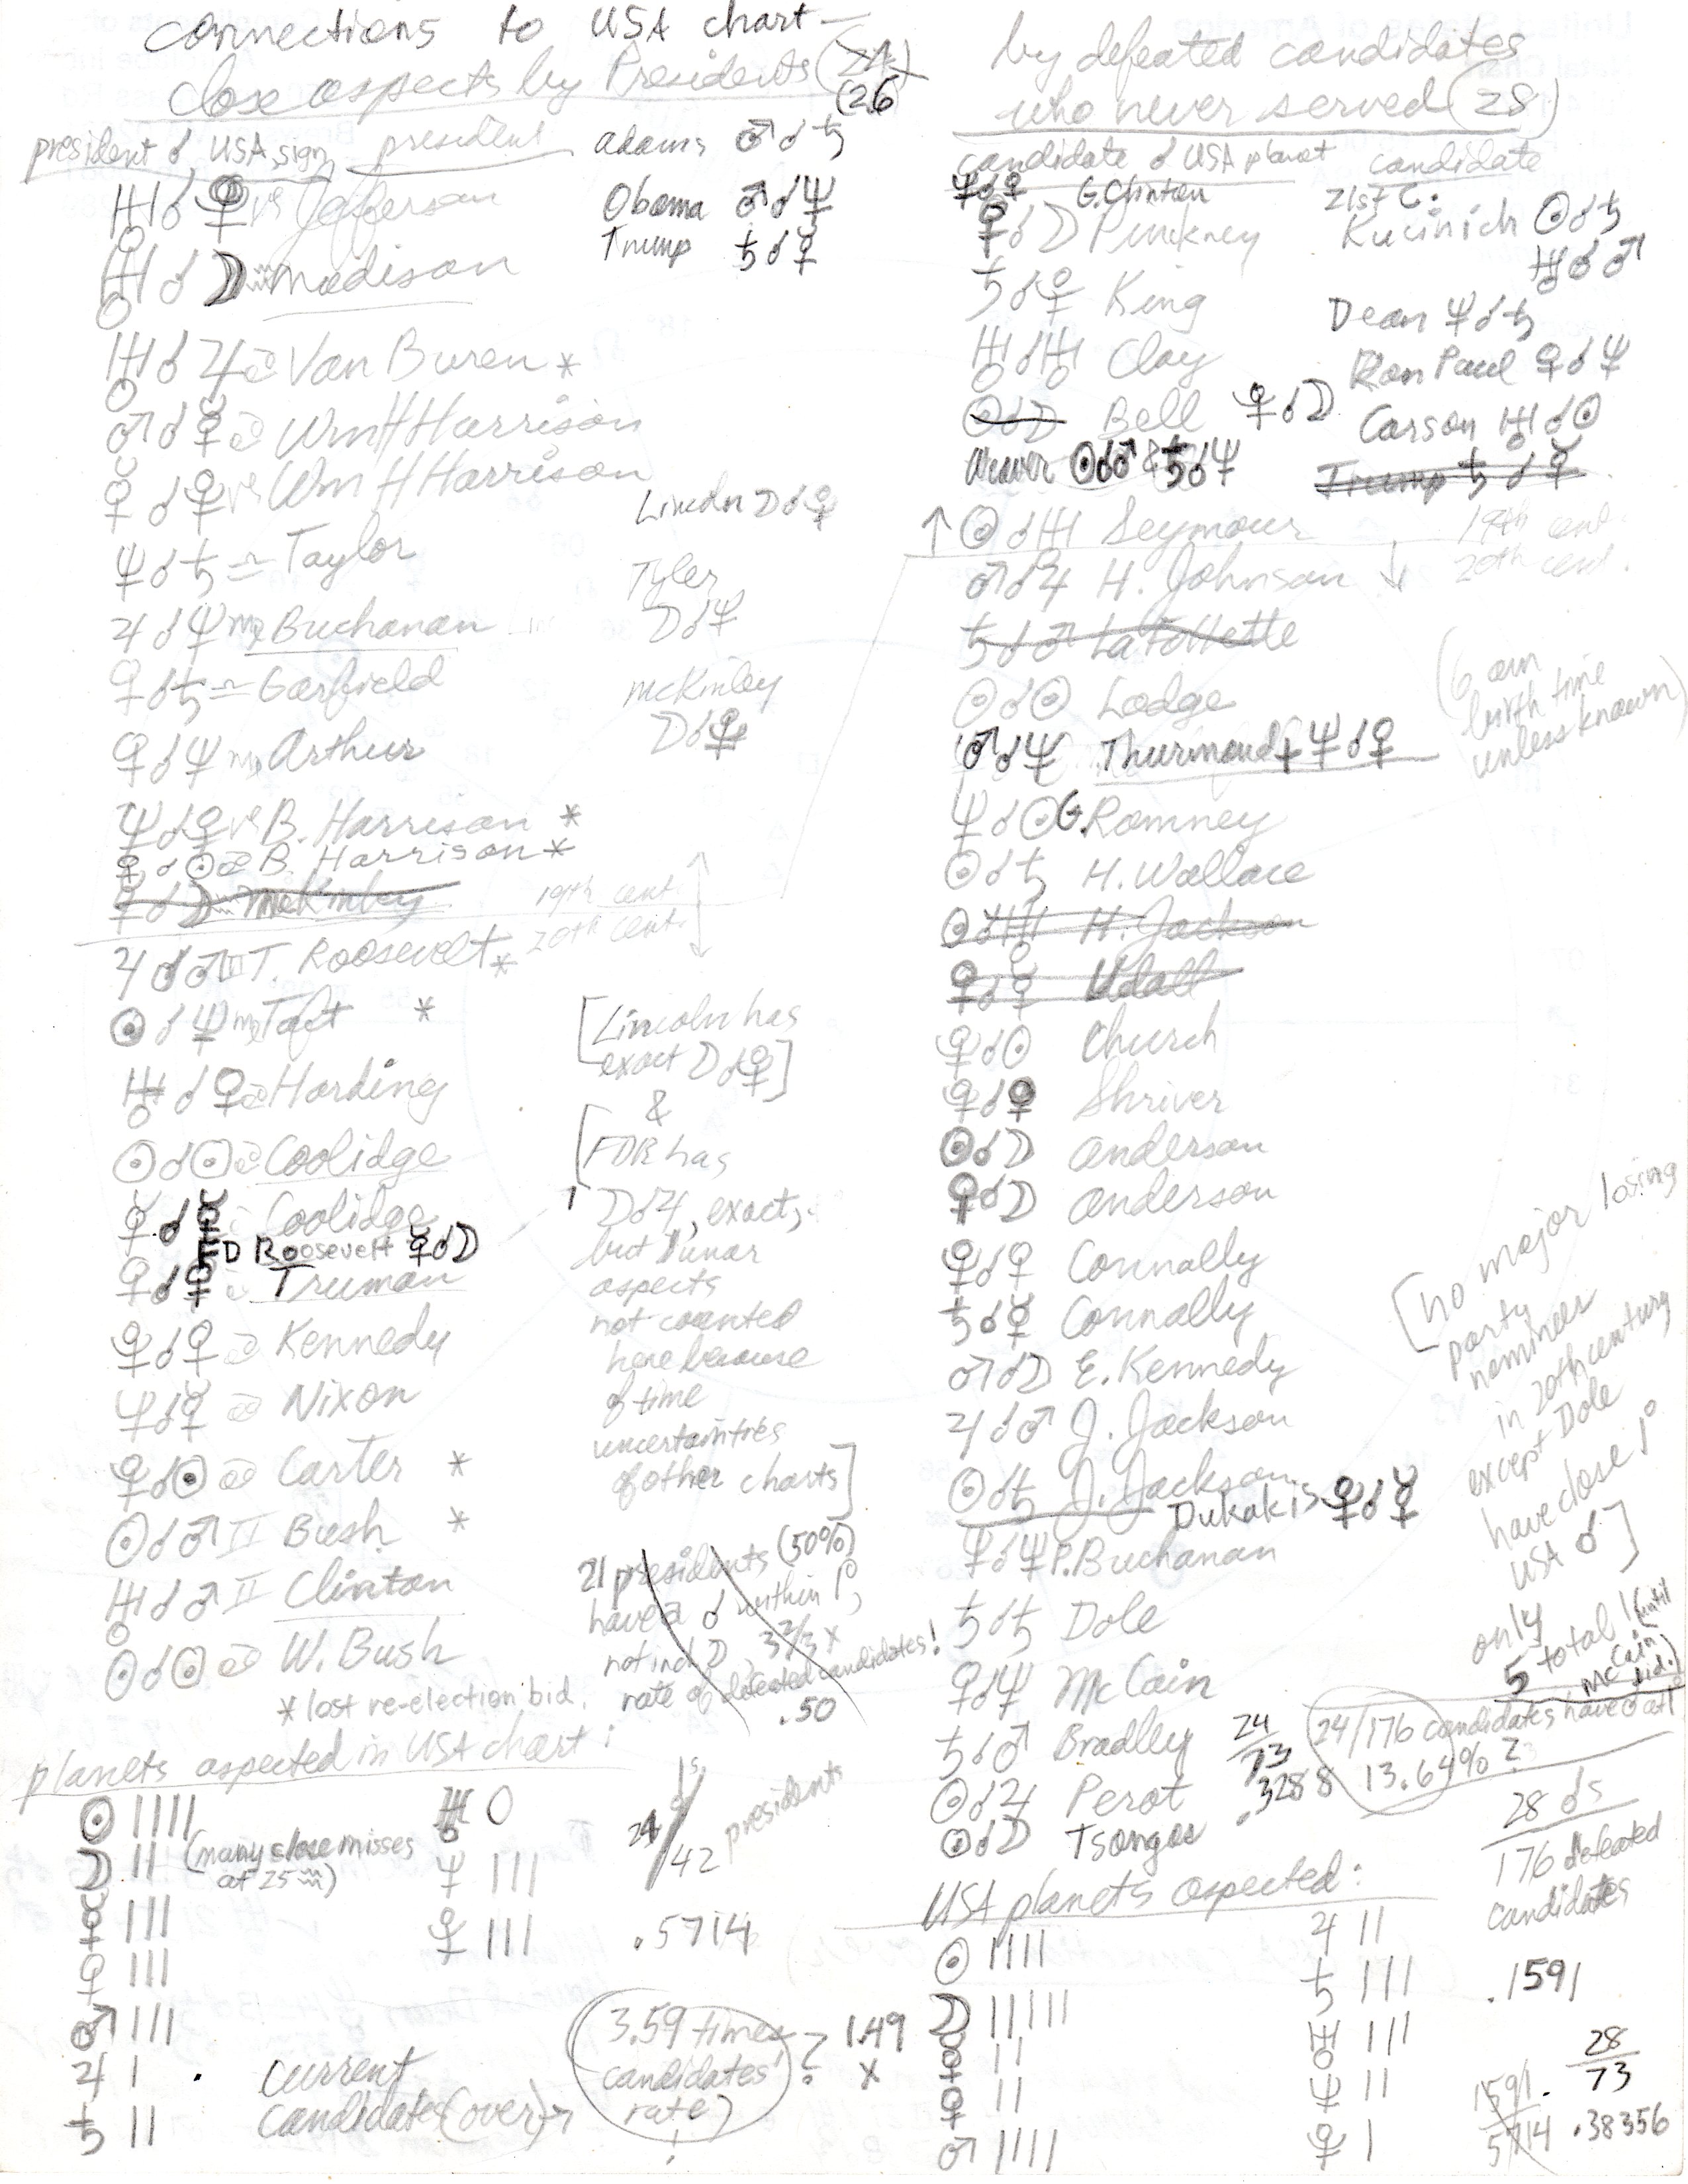 Connections to USA chart —
close aspects by Presidents (24)
(26
president ☌ USA, sign president
Adams ♂☌♄
♅☌♀ ♑ Jefferson
Obama ♂☌♆
Trump ♄☌☿
♅☌☽ ♒ Madison
♅☌♃ ♋ Van Buren *
♂☌☿ ♋ Wm H Harrison
☿☌♀ ♑ Wm H Harrison
Lincoln ☽☌♀
♆☌♄ ♎ Taylor
Tyler
☽☌♆
♃☌♆ ♍ Buchanan
♀☌♄ ♎ Garfield
McKinley
☽☌♀
♀☌♆ ♍ Arthur
♆☌♀ ♑ B. Harrison *
♀☌☉ ♋ B. Harrison *
♀☌☽ ♒ McKinley
19th cent.
20th cent.
♃☌♂ ♊ T. Roosevelt *
☉☌♆ ♍ Taft *
[Lincoln has
exact ☽☌♀]
♅☌♀ ♋ Harding
&
☉☌☉ ♋ Coolidge
[FDR has
☽☌♃, exact,
but lunar
aspects
not counted
here because
of time
uncertainties
of other charts]
☿☌☿ Coolidge
FD Roosevelt ☿☌☽
♀☌♀ Truman
♀☌♀ ♋ Kennedy
♆☌☿ ♋ Nixon
♀☌☉ ♋ Carter *
☉☌♂ ♊ Bush *
♅☌♂ ♊ Clinton
☉☌☉ ♋ W. Bush
* lost re-election bid.
21 presidents (50%)
have a ☌ within 1°,
not incl ☽, 3 2/3 x
rate of defeated candidates!
.50
planets aspected in USA chart:
☉ IIII
☽ II (many close misses
at 25 ♒)
☿ III
♀ III
♂ IIII
♃ I
♄ II
♅ O
♆ III
♀ III
1s
24/42 presidents
.5714
current
candidates (over) →
3.59 times
candidates'
rate)
!
? 1.49
x
by defeated candidates
who never served (28)
candidate ☌ USA planet candidate
♆☌♀ G. Clinton
♀☌☽ Pinckney
♄☌♀ King
♅☌♅ Clay
☉☌☽ Bell ♀☌☽
Weaver ☉☌♂ & ♄☌♆
↑ ☉☌♅ Seymour
19th cent.
20th cent.
21st C.
Kucinich ☉☌♄
♅☌♂
Dean ♆☌♄
Ron Paul ♀☌♆
Carson ♅☌☉
Trump ♄☌☿
♂☌♃ H. Johnson ↓
♄☌♂ LaFollette
☉☌☉ Lodge
♂☌♆ Thurmond + ♆☌♀
(6 am
birth time
unless known)
♆☌☉ G. Romney
☉☌♄ H. Wallace
☉☌♅ H. Jackson
♀☌♀ Udall
♀☌☉ Church
♀☌♀ Shriver
☉☌☽ Anderson
♀☌☽ Anderson
♀☌♀ Connally
♄☌☿ Connally
♂☌☽ E. Kennedy
♃☌♂ J. Jackson
☉☌♄ J. Jackson
Dukakis ♀☌☿
♆☌♆ P. Buchanan
♄☌♄ Dole
♀☌♆ McCain
♄☌♂ Bradley
☉☌♃ Perot
☉☌☽ Tsongas
[no major losing
party
nominees
in 20th century
except Dole
have close 1°
USA ☌]
only
5 total! (until
McCain
bid.)
24/73
.3288
24/176 candidates have ☌ at 1°
13.64% ?
28 ☌s
176 defeated
candidates
.1591
USA planets aspected:
☉ IIII
☽ IIIII
☿ II
♀ II
♂ IIII
♃ II
♄ III
♅ III
♆ II
♀ I
.1591
5714
28
73
.38356